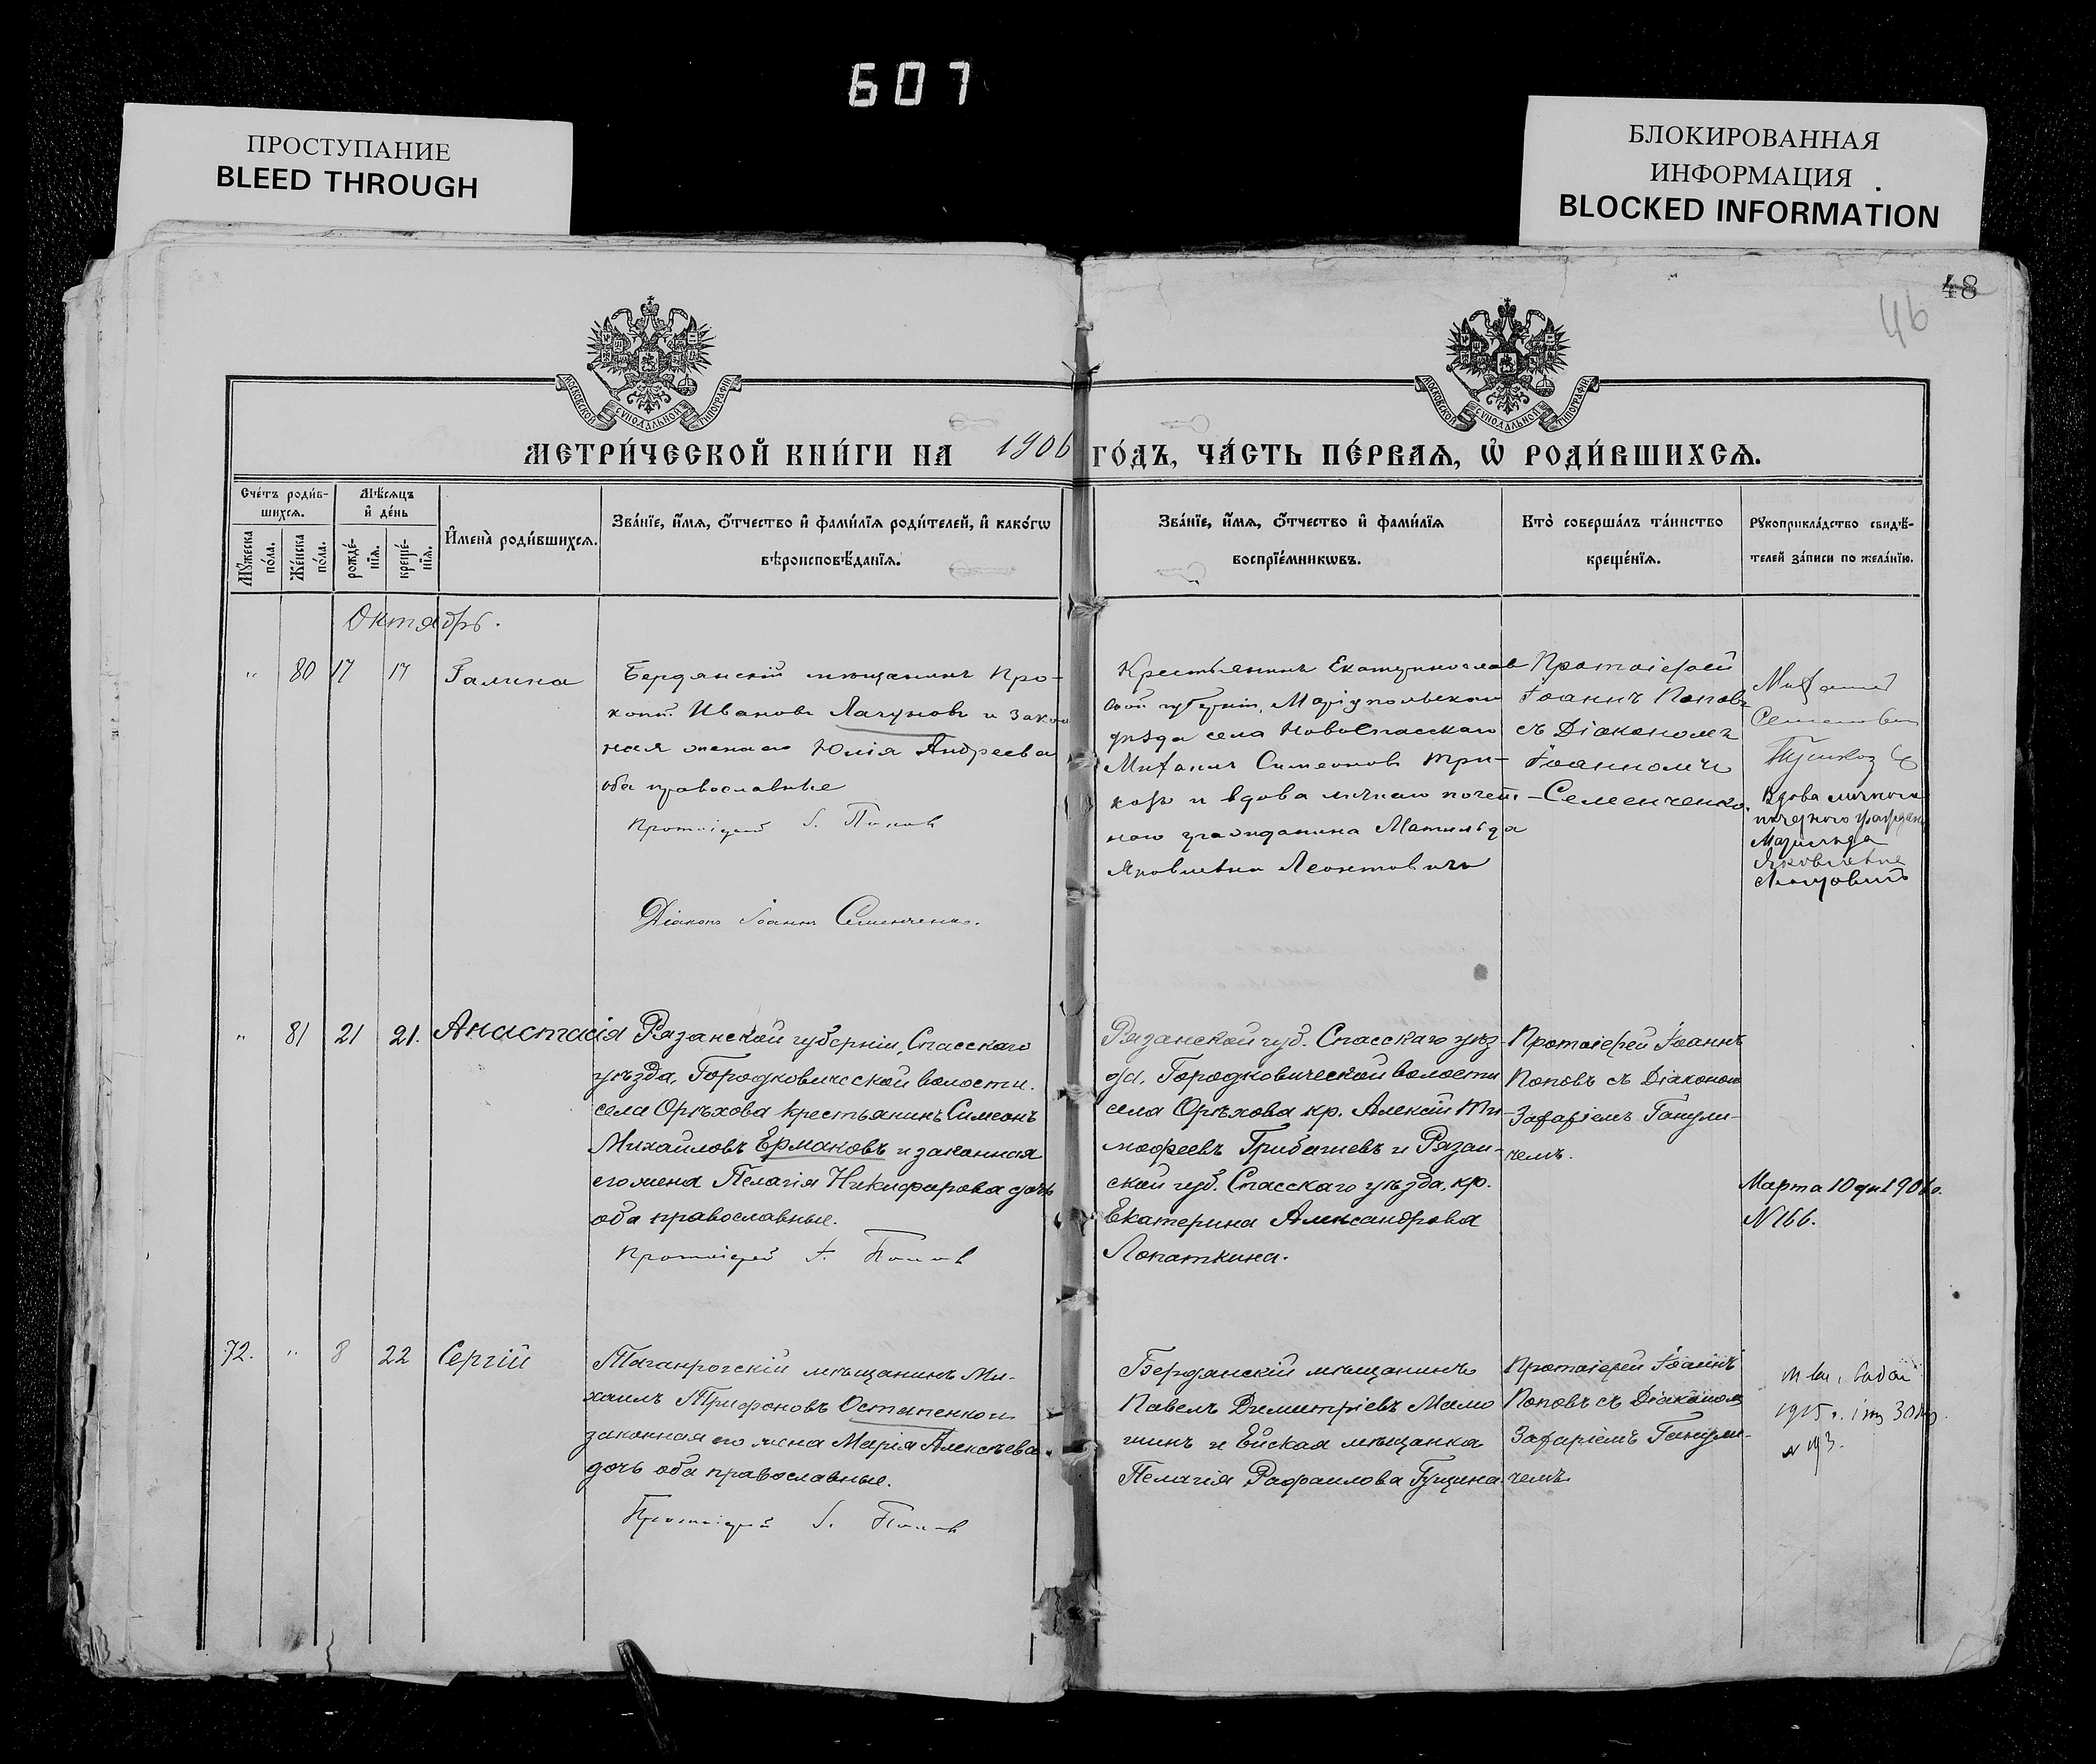 607
ПРОСТУПАНИЕ
BLEED THROUGH
БЛОКИРОВАННАЯ
ИНФОРМАЦИЯ
BLOCKED INFORMATION
48
46
МОСКОВСКОЙ СѴНОДАЛЬНОЙ ТИПОГРАФІИ
МОСКОВСКОЙ СѴНОДАЛЬНОЙ ТИПОГРАФІИ
МЕТРИ́ЧЕСКОЙ КНИ́ГИ НА 1906 ГО́ДЪ, ЧА́СТЬ ПЕ́РВАѦ, Ѡ҆ РОДИ́ВШИХСѦ.
Сче́тъ роди́в-
шихсѧ.
Мꙋ́жеска
по́ла.
Же́нска
по́ла.
Мѣ́сѧцъ
и҆ де́нь
рожде́-
нїѧ.
креще́-
нїѧ.
И҆мена̀ роди́вшихсѧ.
Зва́нїе, и҆́мѧ, ѻ҆́тчество и҆ фами́лїѧ роди́телей, и҆ како́гѡ
вѣроисповѣ́данїѧ.
Зва́нїе, и҆́мѧ, ѻ҆́тчество и҆ фами́лїѧ
воспрїе́мникѡвъ.
Кто̀ соверша́лъ та́инство
креще́нїѧ.
Рꙋкоприкла́дство свидѣ́-
телей за́писи по жела́нїю.
Октябрь.
" 80 17 17 Галина
Бердянскій мѣщанинъ Про-
копій Ивановъ Лагуновъ и закон
ная жена его Юлія Андреева
оба православные
Протоіерей І. Поповъ
Діаконъ Іоаннъ Семенченко.
Крестьянинъ Екатеринослав
ской губерніи, Маріупольскаго
уѣзда села НовоСпасскаго
Михаилъ Симеоновъ
и вдова личнаго почет-
наго гражданина Матильда
Яковлевна Леонтовичъ
Протоіерей
Іоаннъ Поповъ
съ Діакономъ
Іоанномъ
Семенченко.
Михаилъ
Семеновъ
Вдова личнаго
почетнаго гражданина
Матильда
Яковлевна
Леонтовичъ
" 81 21 21. Анастасія
Рязанской губерніи, Спасскаго
уѣзда, Городковической волости.
села Орѣхова крестьянинъ Симеонъ
Михайловъ Ермаковъ и законная
его жена Пелагія Никифорова дочь
оба православные.
Протоіерей І. Поповъ
Рязанской губ. Спасскаго уѣз-
да, Городковической волости
села Орѣхова кр. Алексій Ти-
мофеевъ и Рязан-
ской губ. Спасскаго уѣзда, кр.
Екатерина Александрова
Лопаткина.
Протоіерей Іоаннъ
Поповъ съ Діакономъ
Захаріемъ Ганули-
чемъ.
Марта 10 дн 190
N 166.
72. " 8 22 Сергій
Таганрогскій мѣщанинъ Ми-
хаилъ Трифоновъ Остапенко и
законная его жена Марія Алексѣева
дочь оба православные.
Протоіерей І. Поповъ
Бердянскій мѣщанинъ
Павелъ Димитріевъ Мамо
шинъ и Ейская мѣщанка
Пелагія Рафаилова Гущина.
Протоіерей Іоаннъ
Поповъ съ Діакономъ
Захаріемъ Ганули-
чемъ
1915 г. 30